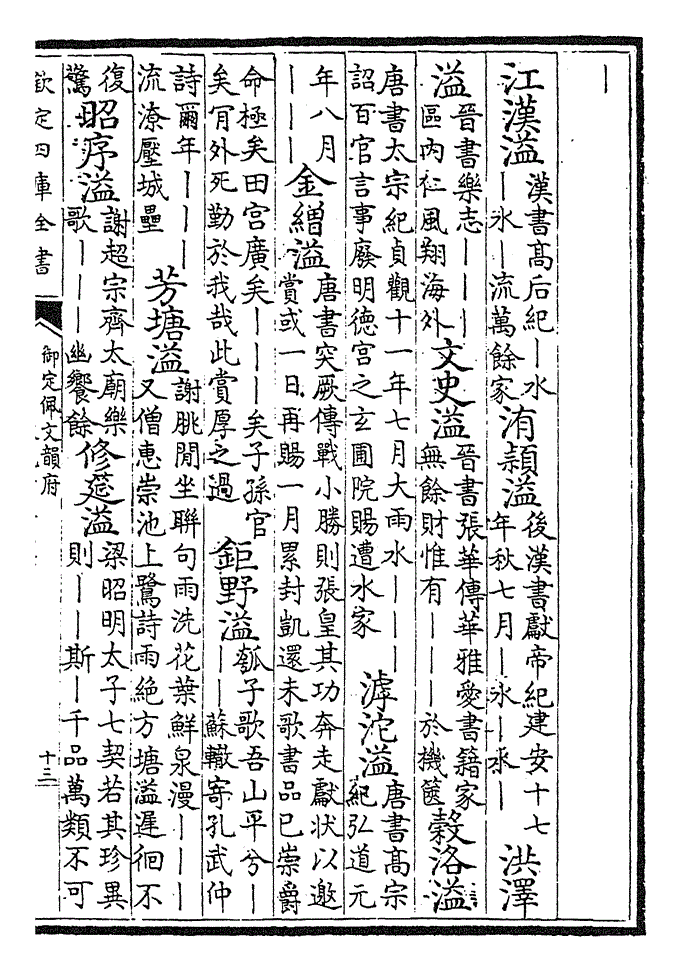 ｜
江漢溢 漢書高后紀｜水｜水｜流萬餘家 洧潁溢 後漢書獻帝紀建安十七年秋七月｜水｜水｜ 洪澤
溢 晉書樂志｜｜｜區内仁風翔海外 文史溢 晉書張華傳華雅愛書籍家無餘財惟有｜｜｜於機篋 穀洛溢
唐書太宗紀貞觀十一年七月大雨水｜｜｜詔百官言事廢明德宫之玄圃院賜遭水家 滹沱溢 唐書高宗紀弘道元
年八月｜｜｜ 金繒溢 唐書突厥傳戰小勝則張皇其功奔走獻狀以邀賞或一日再賜一月累封凱還未歌書品已崇爵
命極矣田宫廣矣｜｜｜矣子孫官矣肎外死勤於我哉此賞厚之過 鉅野溢 瓠子歌吾山平兮｜｜｜蘇轍寄孔武仲
詩爾年｜｜｜流潦壓城壘 芳塘溢 謝朓閒坐聯句雨洗花葉鮮泉漫｜｜｜又僧惠崇池上鷺詩雨絕方塘溢遲徊不
復驚 昭序溢 謝超宗齊太廟樂歌｜｜｜幽饗餘 修筵溢 梁昭明太子七契若其珍異則｜｜斯｜千品萬類不可
欽定四庫全書
御定佩文韻府
十三